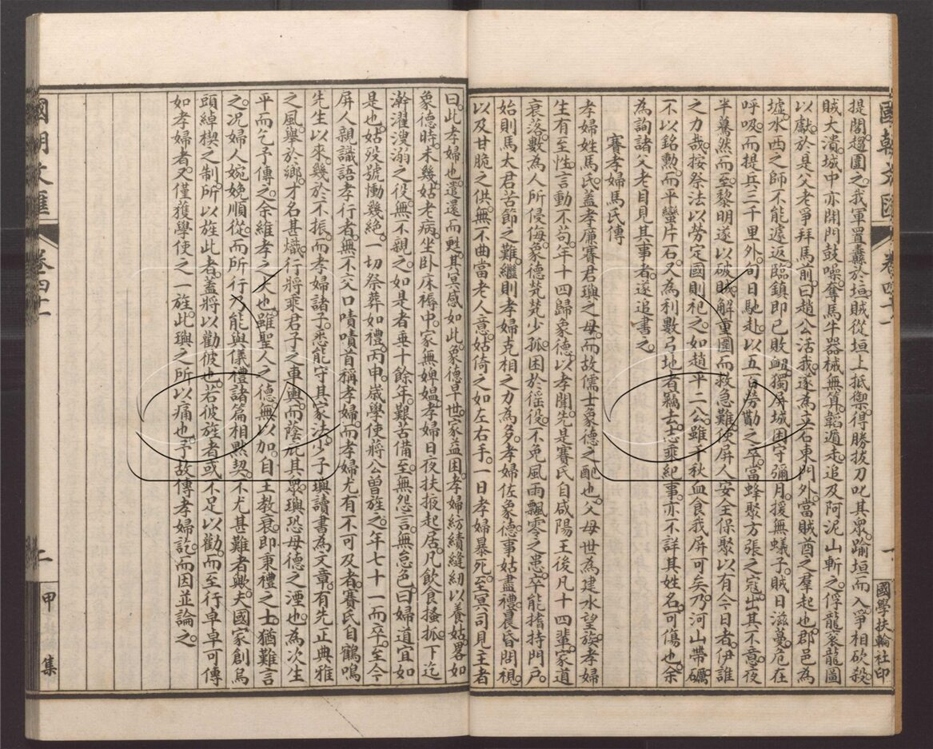 國學扶輪社印
提閣趨圍之我軍置纛於垣賊從垣上抵禦得勝拔刀叱其衆踰垣而入爭相砍殺
賊大潰城中亦開門鼓噪奪馬牛器械無算韜遁走追及阿泥山斬之俘龍奚龍圖
以獻於是父老爭拜馬前曰趙公活我遂為立石東門外當賊酋之羣起也郡邑為
墟水西之師不能遽返臨鎮即已敗衄獨屏城困守彌月援無蟻子賊日滋蔓危在
呼吸而提兵三千里外旬日馳赴以五百勞勩之卒當蜂聚方張之寇出其不意夜
半驀然而至黎明遂以破敵解重圍而救急難使屏人安全保聚以有今日者伊誰
之力哉按祭法以勞定國則祀之如趙平二公雖千秋血食我屏可矣乃河山帶礪
不以銘勲而平蠻片石又為利數弓地者竊去志乘紀事亦不詳其姓名可傷也余
為詢諸父老目見其事者遂追書之
賽孝婦馬氏傳
孝婦姓馬氏蓋孝廉賽君璵之母而故儒士象德之配也父母世為建水望族孝婦
生有至性言動不苟年十四歸象德以孝聞先是賽氏自咸陽王後凡十四輩家道
衰落數為人所侵侮象德煢煢少孤困於徭役不免風雨飄零之患卒能揩持門戶
始則馬太君苦節之難繼則孝婦克相之力為多孝婦佐象德事姑盡禮晨昏問視
以及甘脆之供無不曲當老人意姑倚之如左右手一日孝婦暴死至冥司見主者
國朝文匯 卷四十一 甲集
曰此孝婦也遣還而甦其冥感如此象德早世家益困孝婦紡績縫紉以養姑畧如
象德時未幾姑老病坐卧床褥中家無婢媼孝婦日夜扶掖起居凡飲食搔抓下迄
澣濯溲溺之役無不親之如是者垂十餘年艱苦備至無怨言無怠色曰婦道宜如
是也姑歿號慟幾絕一切祭葬如禮丙申歲學使將公曾旌之年七十一而卒至今
屏人親識語孝行者無不口嘖嘖首稱孝婦而孝婦尤有不可及者賽氏自鶴鳴
先生以來幾於不振而孝婦諸子悉能守其家法少子璵讀書為文章有先正典雅
之風舉於鄉才名甚熾行將乘君子之車輿而蔭庇其衆璵恐母德之湮也為次生
平而乞予傳之余維孝之大也雖聖人之德無以加自王教衰即秉禮之士猶難言
之況婦人婉娩順從而所行乃能與儀禮諸篇相默契不尤甚難者與夫國家創烏
頭綽楔之制所以旌此者蓋將以勸彼也若彼旌者或不足以勸而至行卓卓可傳
如孝婦者又僅獲學使之一旌此璵之所以痛也予故傳孝婦訖而因並論之